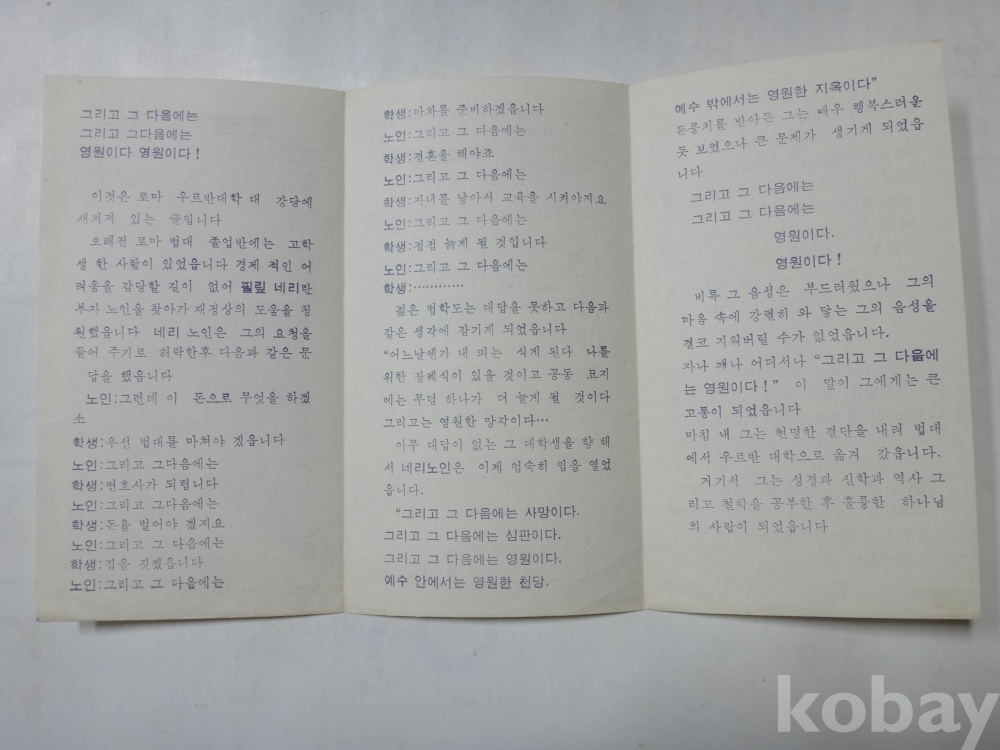 그리고 그 다음에는
그리고 그다음에는
영원이다 영원이다!
이것은 로마 우르반대학 대 강당에
새겨져 있는 글입니다
오래전 로마 법대 졸업반에는 고학
생 한 사람이 있었읍니다 경제 적인 어
려움을 감당할 길이 없어 필맆 네리란
부자 노인을 찾아가 재정상의 도움을 청
원했읍니다 네리 노인은 그의 요청을
들어 주기로 허락한후 다음과 같은 문
답을 했읍니다
노인:그런데 이 돈으로 무엇을 하겠
소
학생:우선 법대를 마쳐야 겠읍니다
노인:그리고 그다음에는
학생:변호사가 되렵니다
노인:그리고 그다음에는
학생:돈을 벌어야 겠지요
노인:그리고 그 다음에는
학생:집을 짓겠읍니다
노인:그리고 그 다음에는
학생:마차를 준비하겠읍니다
노인:그리고 그 다음에는
학생:결혼을 해야죠
노인:그리고 그 다음에는
학생:자녀를 낳아서 교육을 시켜야지요
노인:그리고 그 다음에는
학생:점점 늙게 될 것입니다
노인:그리고 그 다음에는
학생:…………
젊은 법학도는 대답을 못하고 다음과
같은 생각에 잠기게 되었읍니다
“어느날엔가 내 피는 식게 된다 나를
위한 장례식이 있을 것이고 공동 묘지
에는 무덤 하나가 더 늘게 될 것이다
그리고는 영원한 망각이다…
아무 대답이 없는 그 대학생을 향 해
서 네리노인은 이제 엄숙히 입을 열었
읍니다.
“그리고 그 다음에는 사망이다.
그리고 그 다음에는 심판이다.
그리고 그 다음에는 영원이다.
예수 안에서는 영원한 천당.
예수 밖에서는 영원한 지옥이다”
돈뭉치를 받아든 그는 매우 행복스러운
듯 보였으나 큰 문제가 생기게 되었읍
니다
그리고 그 다음에는
그리고 그 다음에는
영원이다.
영원이다!
비록 그 음성은 부드러웠으나 그의
마음 속에 강렬히 와 닿는 그의 음성을
결코 지워버릴 수가 없었읍니다.
자나 깨나 어디서나 “그리고 그 다음에
는 영원이다!” 이 말이 그에게는 큰
고통이 되었읍니다
마침 내 그는 현명한 결단을 내려 법대
에서 우르반 대학으로 옮겨 갔읍니다.
거기서 그는 성경과 신학과 역사 그
리고 철학을 공부한 후 훌륭한 하나님
의 사람이 되었읍니다
kobay